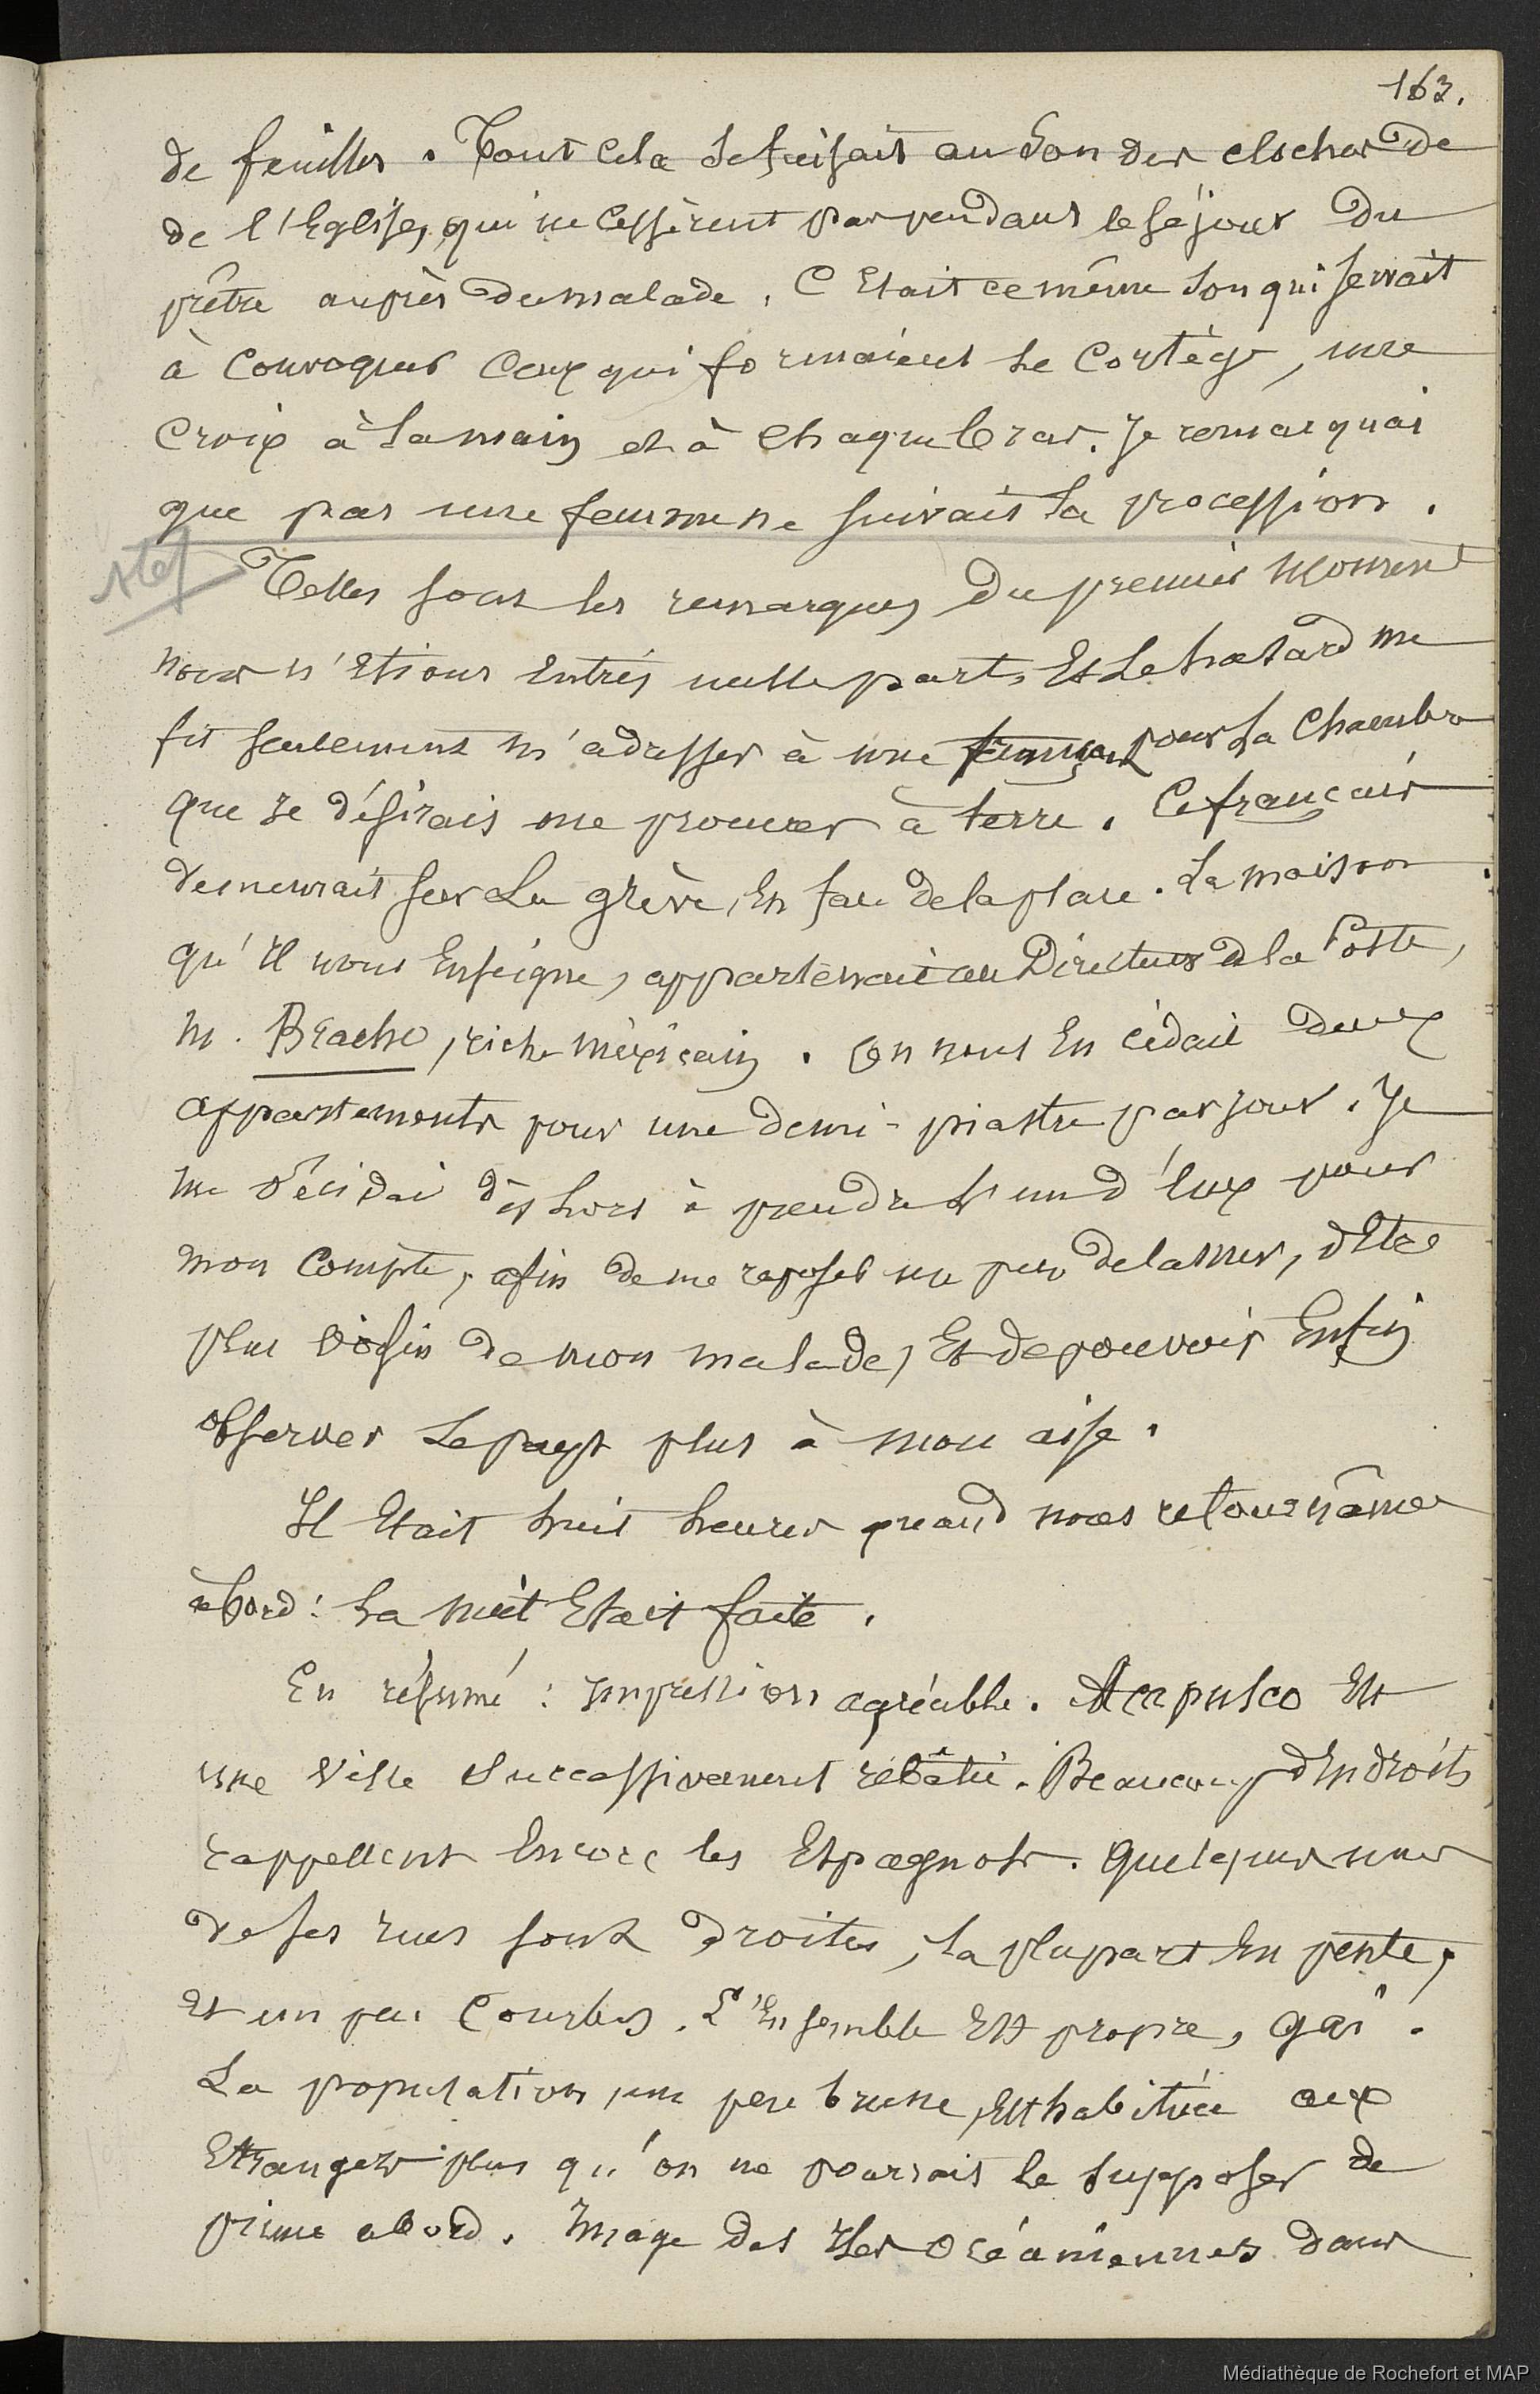 163.
de feuilles. Tout cela se faisait au son des cloches de
de l'Eglise, qui ne cessèrent pas pendant le séjour du
prêtre auprès du malade. C'Etait ce même son qui servait
à convoquer ceux qui formaient le cortège, une
croix à la main et à chaque bras. Je remarquai
que pas une femme ne suivait la procession.
Telles sont les remarques du premier moment
nous n'étions entrés nulle part, Et le hasard me
fit seulement m'adresser à une pour la chambre
que je désirais me procurer à terre. Ce français
demeurait sur la grève, En face de la place. La maison
qu'il nous Enseigne, appartenait au Directeur de la Poste,
M. Bracho, riche méxicain. On nous En cédait deux
appartements pour une demi-piastre par jour. Je
me décidai dès lors à prendre l'un d'Eux pour
mon compte, afin de me reposer un peu de la mer, d'Etre
plus voisin de mon malade, Et de pouvoir Enfin
observer le pays plus à mon aise.
Il Etait huit heures quand nous retournâmes
à bord : La nuit Etait faite.
En résumé : impression agréable. Acapulco Est
une ville successivement rebâtie. Beaucoup d'Endroits
rappellent Encore les Espagnols. Quelques unes
de ses rues sont droites, la plupart En pente,
et un peu courbes. L'Ensemble Est propre, gai.
La population, un peu brune, Est habituée aux
Etrangers plus qu'on ne pourrait le supposer de
prime abord. Image des Iles Océaniennes dans
Médiathèque de Rochefort et MAP